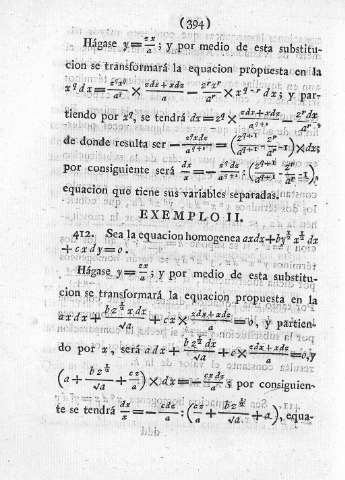 (394)
Hágase y=zx/a; y por medio de esta substitu-
cion se transformará la equacion propuesta en la
x^q dx = z^q x^q/a^q × zdx+xdz/a − z^r x^q/a^r × x^{q-r} dx; y par-
tiendo por x^q, se tendrá dx = z^q/a^q × zdx+xdz/a − z^r dx/a^r
de donde resulta ser − z^q xdz/a^{q+1} = (z^{q+1}/a^{q+1} − z^r/a^r − 1) × dx;
por consiguiente será dx/x = − z^q dz/a^{q+1} : (z^{q+1}/a^{q+1} − z^r/a^r − 1),
equacion que tiene sus variables separadas.
EXEMPLO II.
412. Sea la equacion homogenea axdx+by^{1/2} x^{1/2} dx
+ cxdy=0.
Hágase y=zx/a; y por medio de esta substitu-
cion se transformará la equacion propuesta en la
axdx + bz^{1/2} xdx/√a + cx × zdx+xdz/a = 0, y partien-
do por x, será adx + bz^{1/2} dx/√a + c × zdx+xdz/a = 0, y
(a + bz^{1/2}/√a + cz/a) × dx = − cxdz/a; y por consiguien-
te se tendrá dx/x = − cdz/a : (cz/a + bz^{1/2}/√a + a), equa-